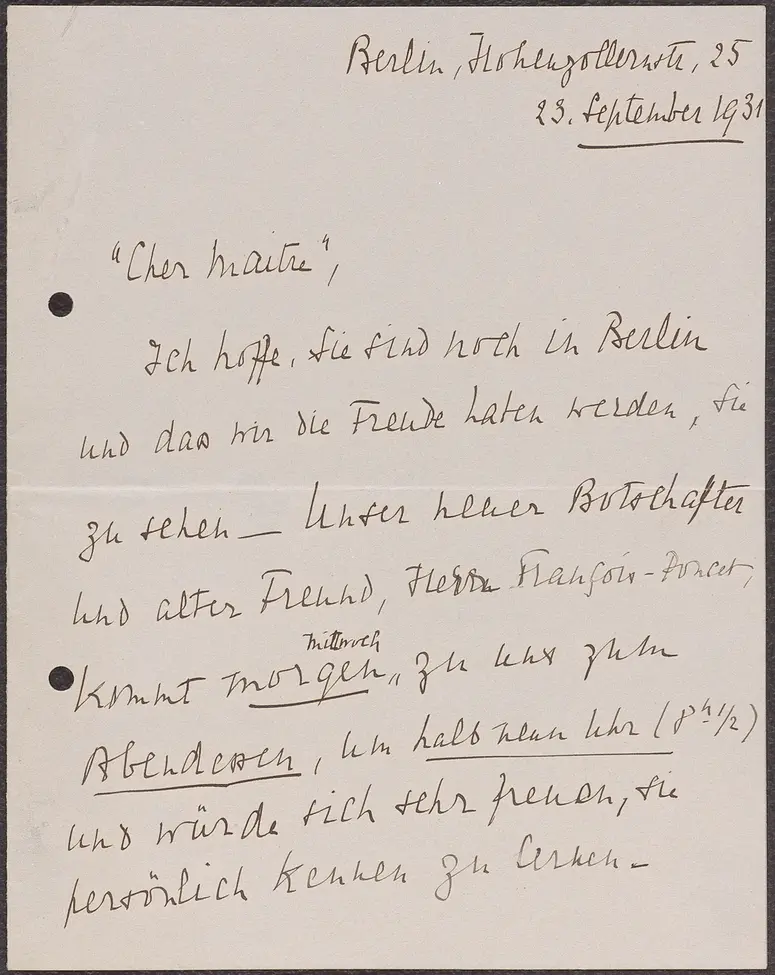 Berlin, Hohenzollernstr, 25
23. September 1931
"Cher Maitre",
Ich hoffe, Sie sind noch in Berlin
und dass wir die Freude haben werden, Sie
zu sehen — Unser neuer Botschafter
und alter Freund, Herrn François-Poncet,
Mittwoch
kommt morgen, zu uns zum
Abendessen, um halb neun Uhr (8h 1/2)
und würde sich sehr freuen, sie
persönlich kennen zu lernen —